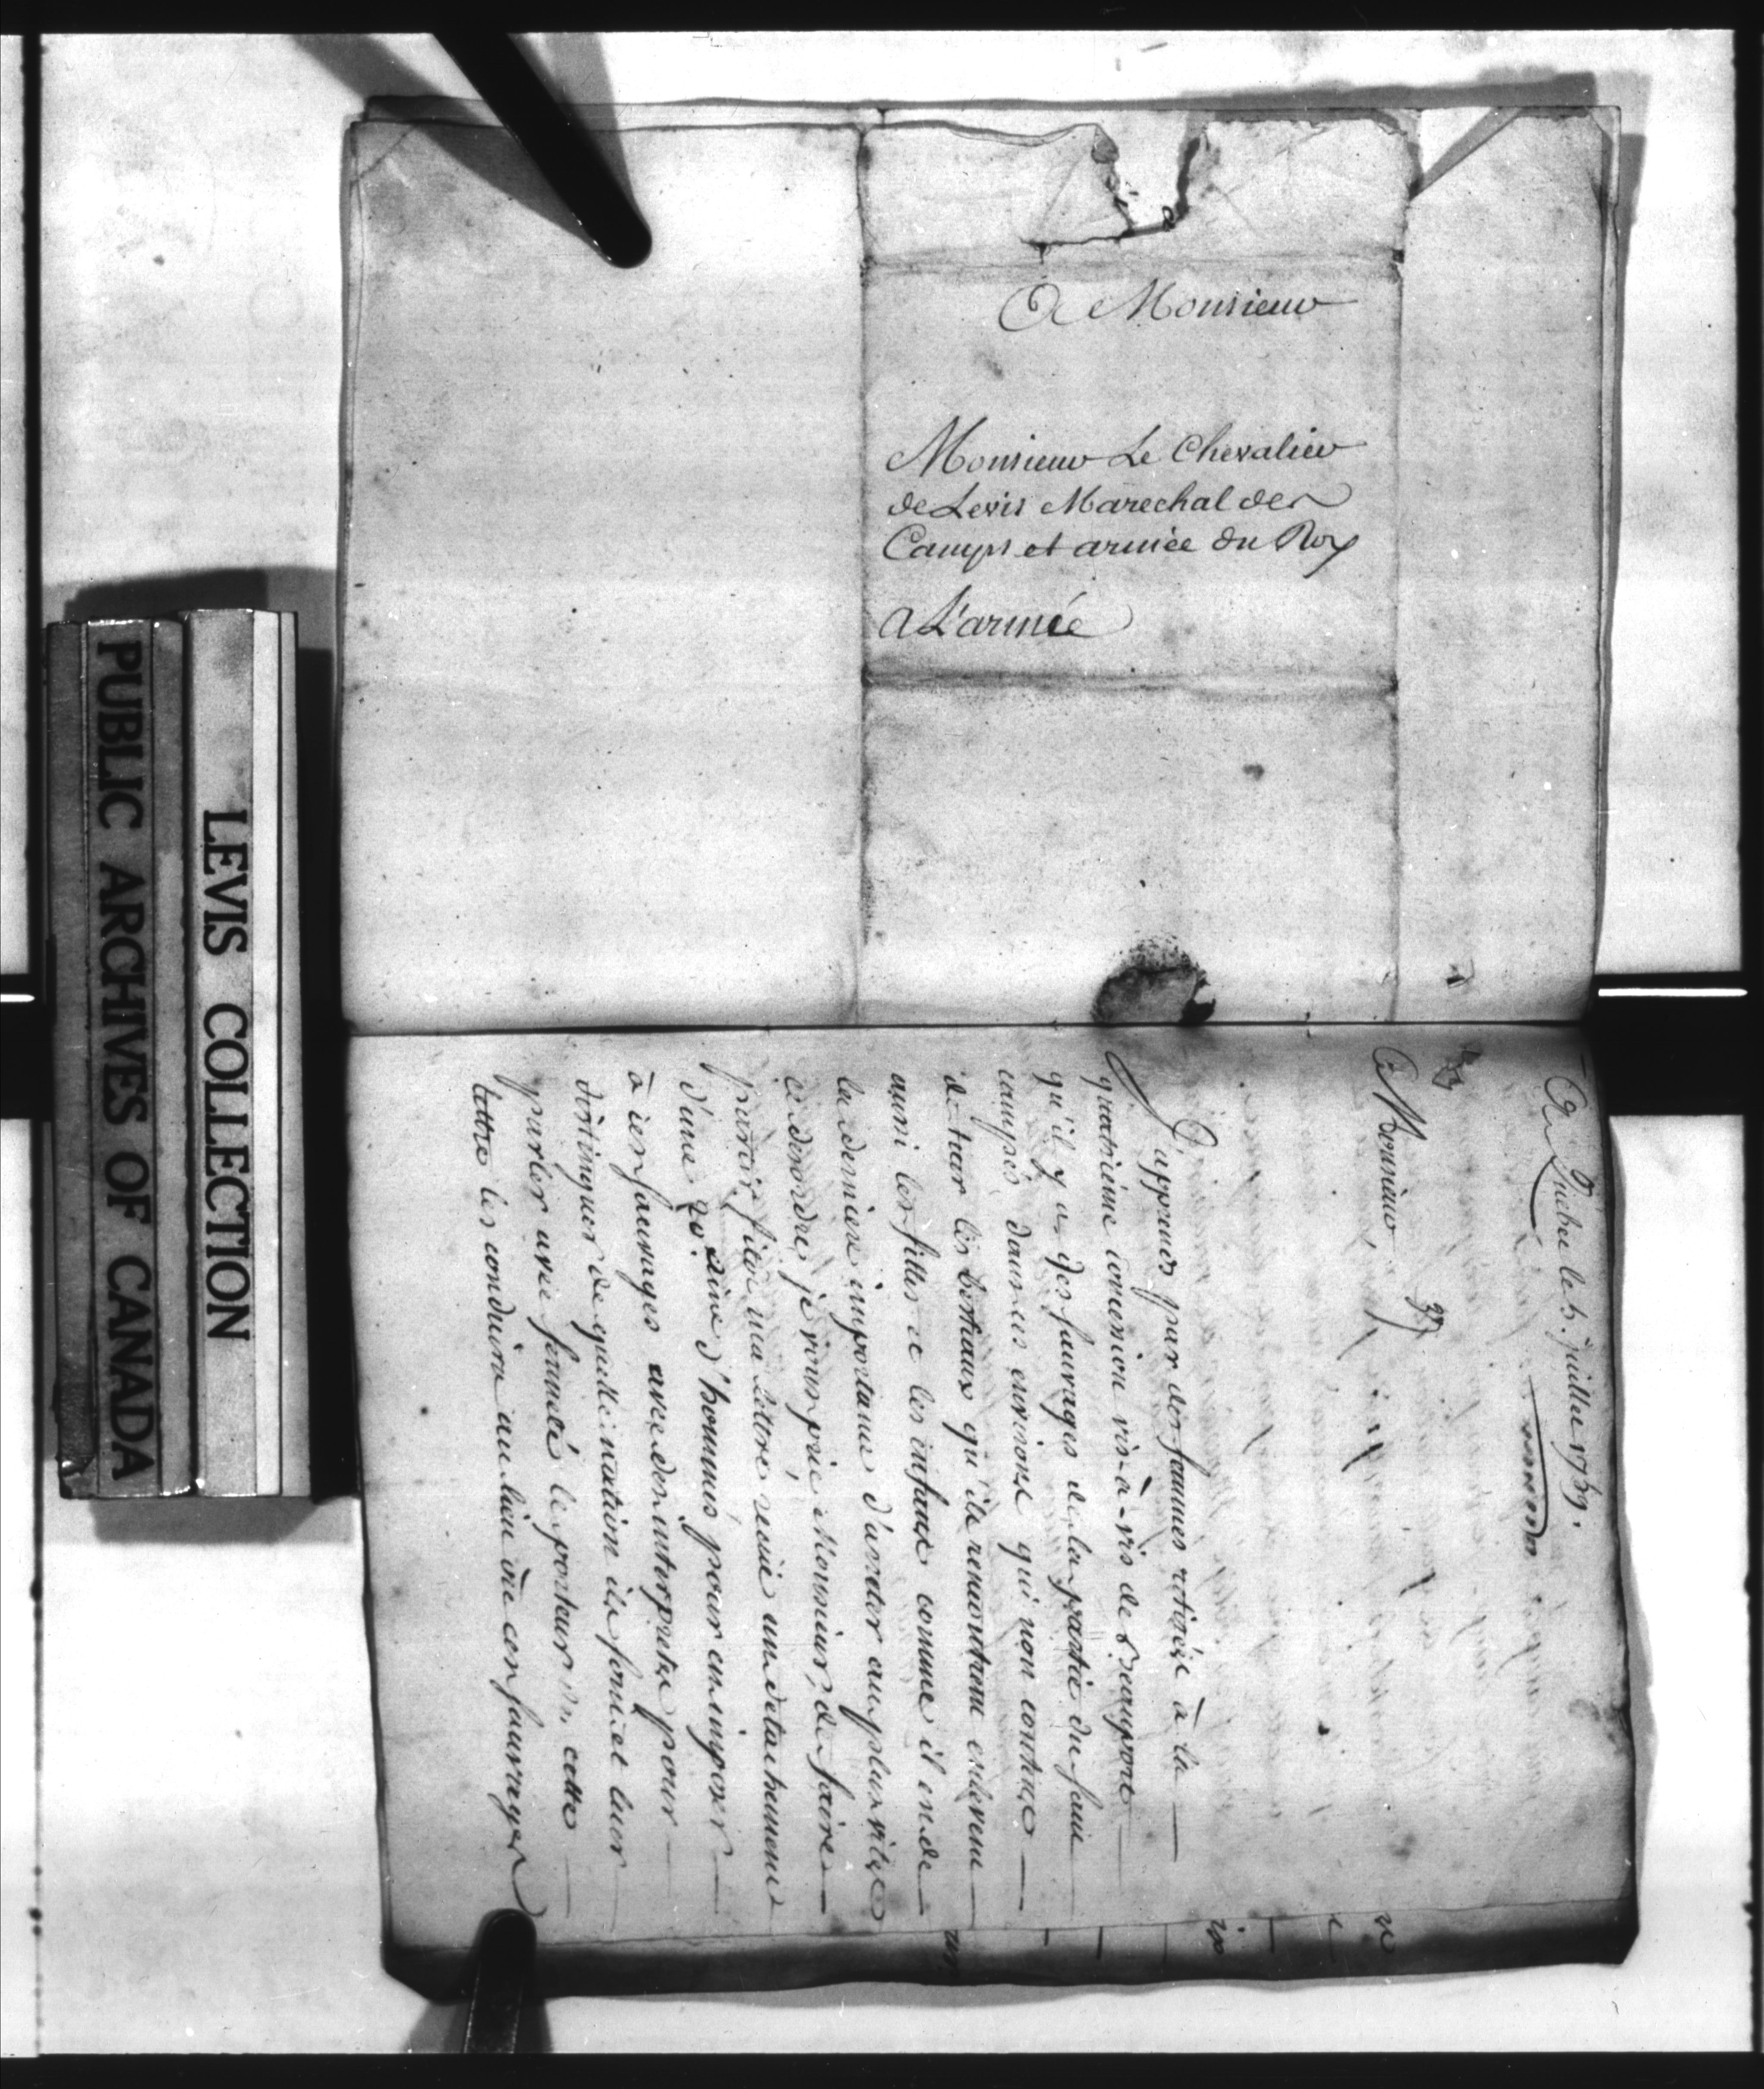 A Monsieur
Monsieur Le Chevalier
de Levis Marechal des
Camps et armée du Roy
a L'armée
PUBLIC ARCHIVES OF CANADA
LEVIS COLLECTION
A Quebec le 5. juillet 1759.
37
Monsieur
J'apprens par des femmes retirées à la
quatrieme concession vis-à-vis de Beauport
qu'il y a des sauvages de la partie du saut
campés dans ces environs qui non contens
de tuer les bestiaux qu'ils rencontrent enlevent
aussi les filles et les enfans comme il est de
la derniere importance d'arreter au plus vite
ce desordre je vous prie Monsieur, de faire
partir sitot ma lettre reçue un detachement
d'une 20.aine d'hommes pour en imposer
à ces sauvages avec des interpretes pour
distinguer de quelle nation ils sont et leur
parler avec fermeté le porteur de cette
lettre les conduira au lieu où ces sauvages